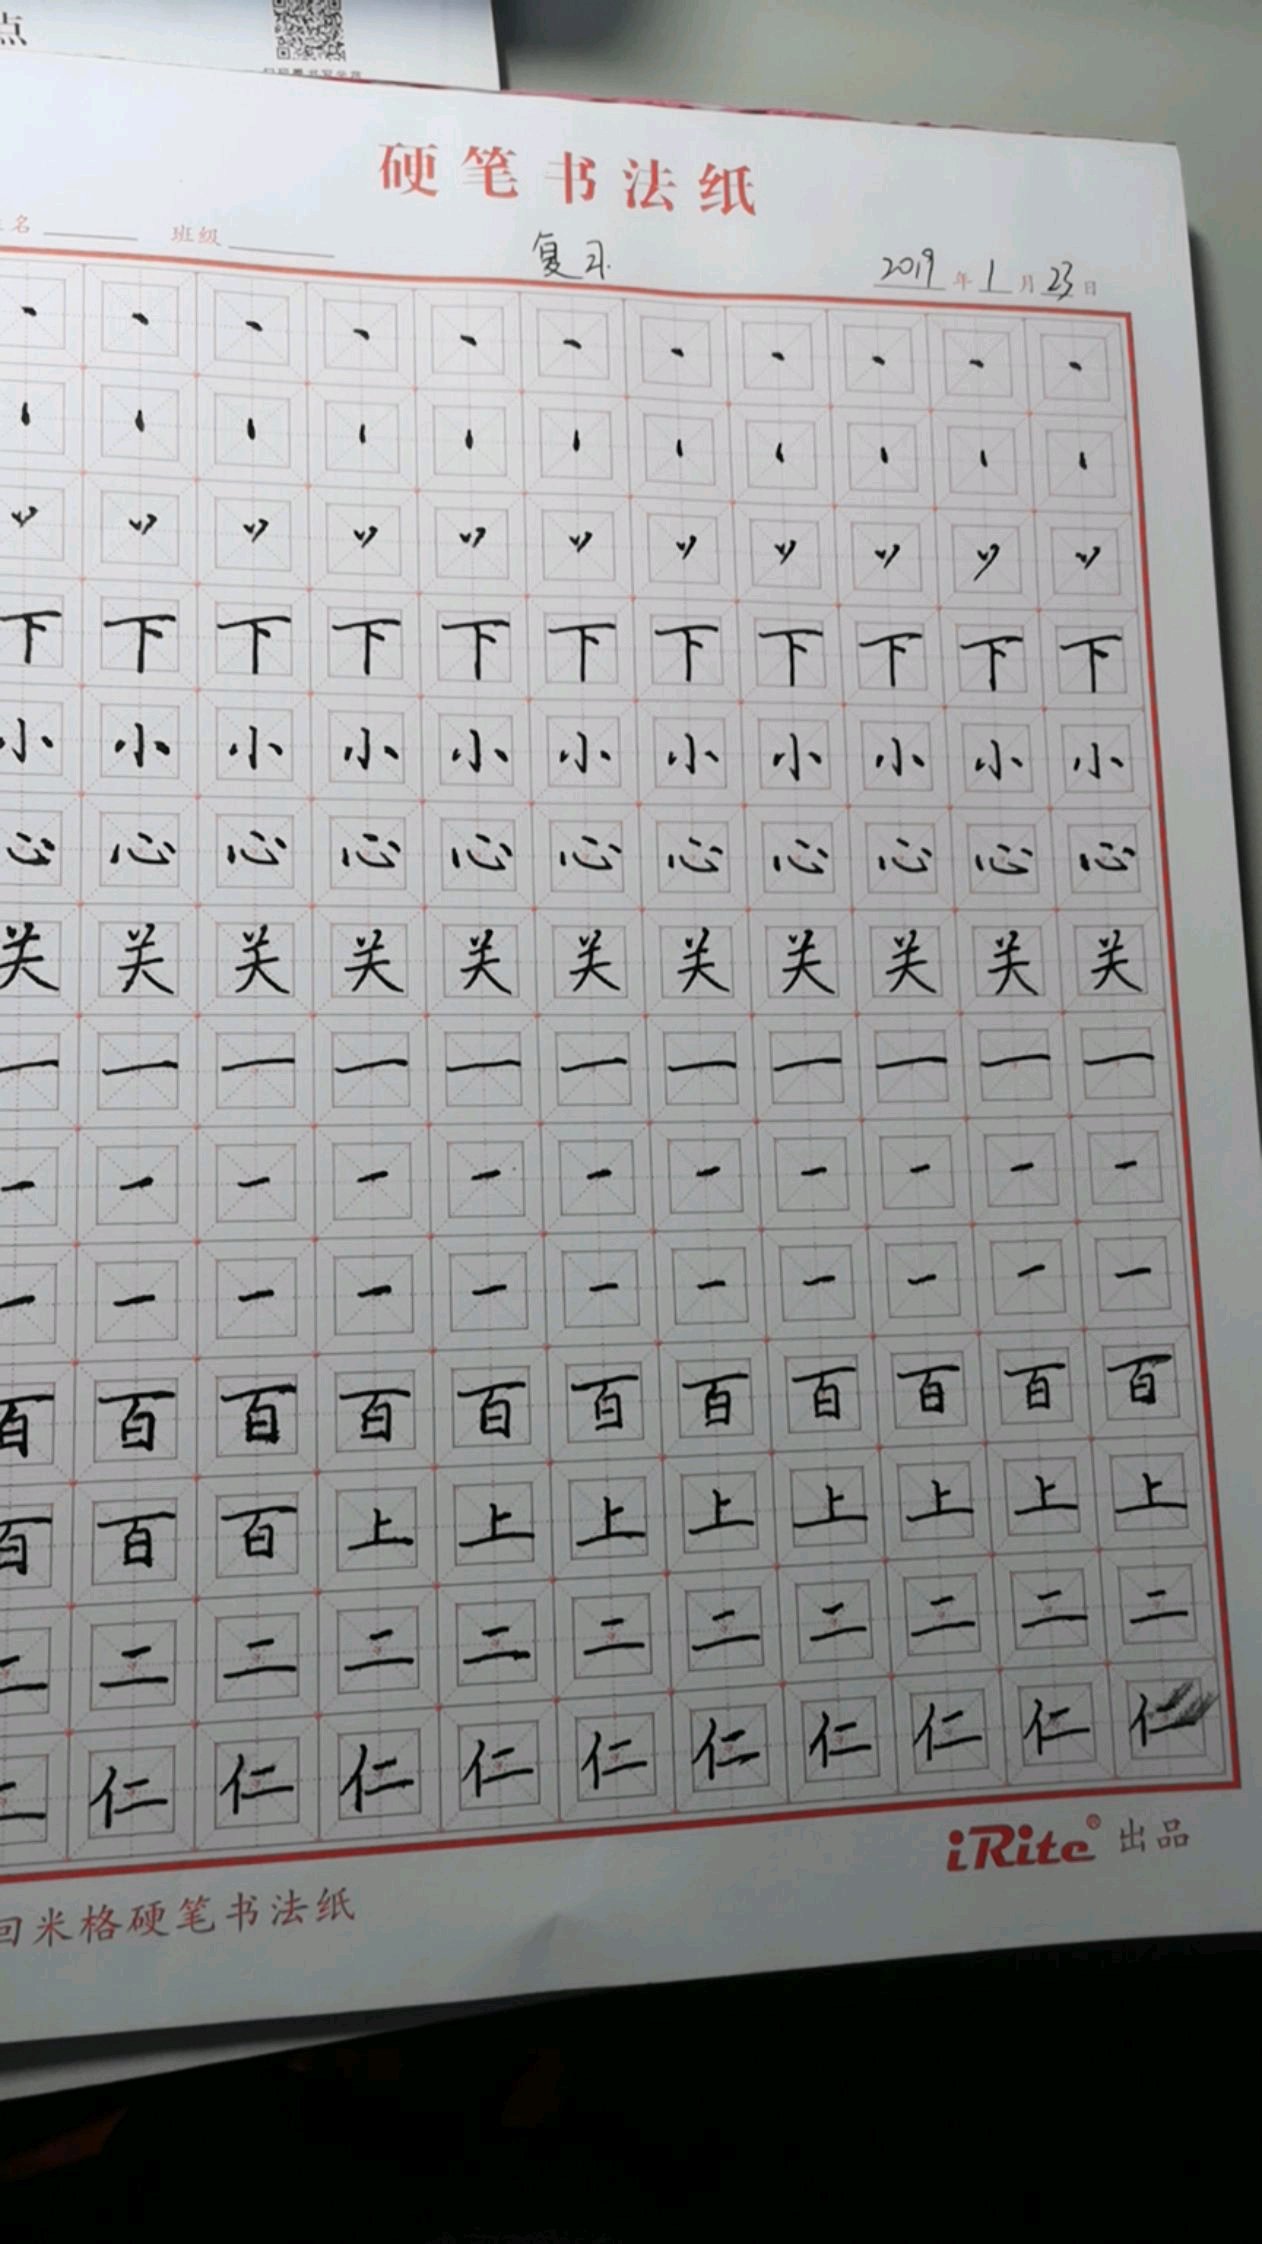 点
硬笔书法纸
名 班级 复习 2019年1月23日
丶 丶 丶 丶 丶 丶 丶 丶 丶 丶 丶
下 下 下 下 下 下 下 下 下 下 下
小 小 小 小 小 小 小 小 小 小 小
心 心 心 心 心 心 心 心 心 心 心
关 关 关 关 关 关 关 关 关 关 关
一 一 一 一 一 一 一 一 一 一 一
一 一 一 一 一 一 一 一 一 一 一
一 一 一 一 一 一 一 一 一 一 一
百 百 百 百 百 百 百 百 百 百 百
百 百 百 上 上 上 上 上 上 上 上
二 二 二 二 二 二 二 二 二 二 二
仁 仁 仁 仁 仁 仁 仁 仁 仁 仁
iRite® 出品
回米格硬笔书法纸